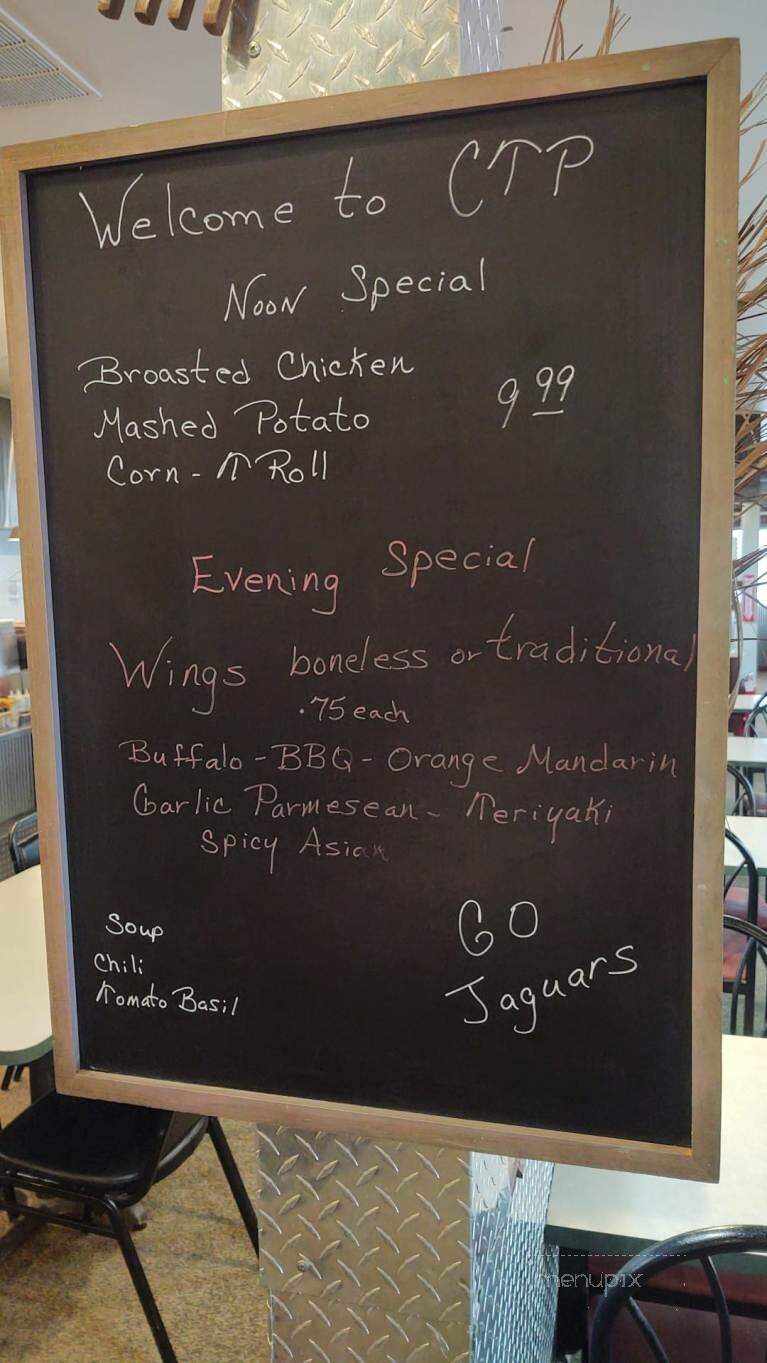 Welcome to CTP
Noon Special
Broasted Chicken
Mashed Potato 9 99
Corn - Roll
Evening Special
Wings boneless or traditional
.75 each
Buffalo - BBQ - Orange Mandarin
Garlic Parmesean - Teriyaki
Spicy Asian
Soup
Chili
Tomato Basil
GO
Jaguars
menupix